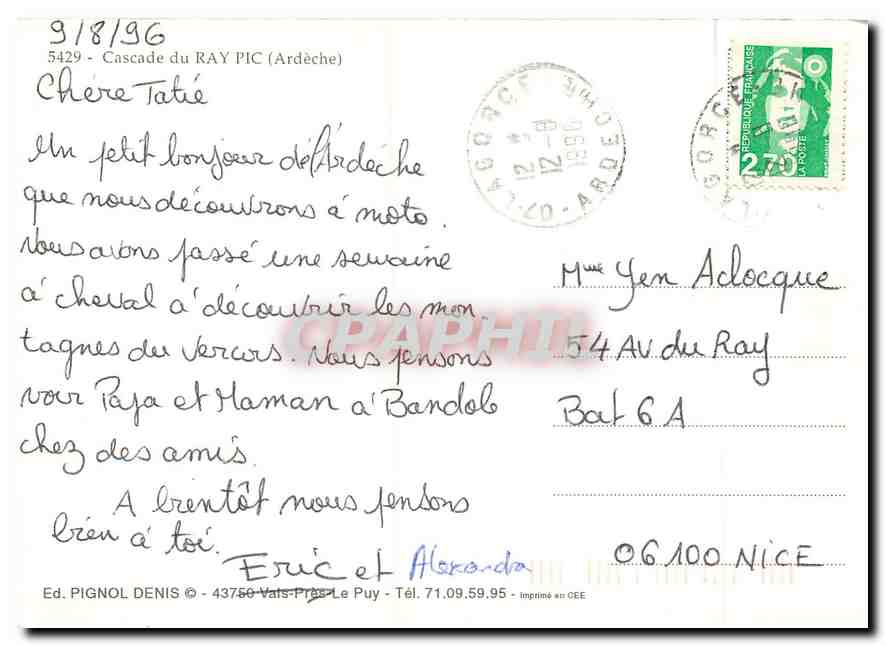 9/8/96
5429 - Cascade du RAY PIC (Ardèche)
Chère Tatie
Un petit bonjour de l'Ardèche
que nous découvrons à moto.
Nous avons passé une semaine
à cheval à découvrir les mon-
tagnes du Vercors. Nous pensons
voir Papa et Maman à Bandol
chez des amis.
A bientôt nous pensons
bien à toi.
Eric et Alexandra
Ed. PIGNOL DENIS © - 43750 Vals-Près-Le Puy - Tél. 71.09.59.95 - Imprimé en CEE
07-LAGORCE
ARDECHE
12 - 8
1996
REPUBLIQUE FRANÇAISE
2,70
LA POSTE
Mme Yen Aclocque
54 AV du Ray
Bat 6 A
06100 NICE
CPAPHIL